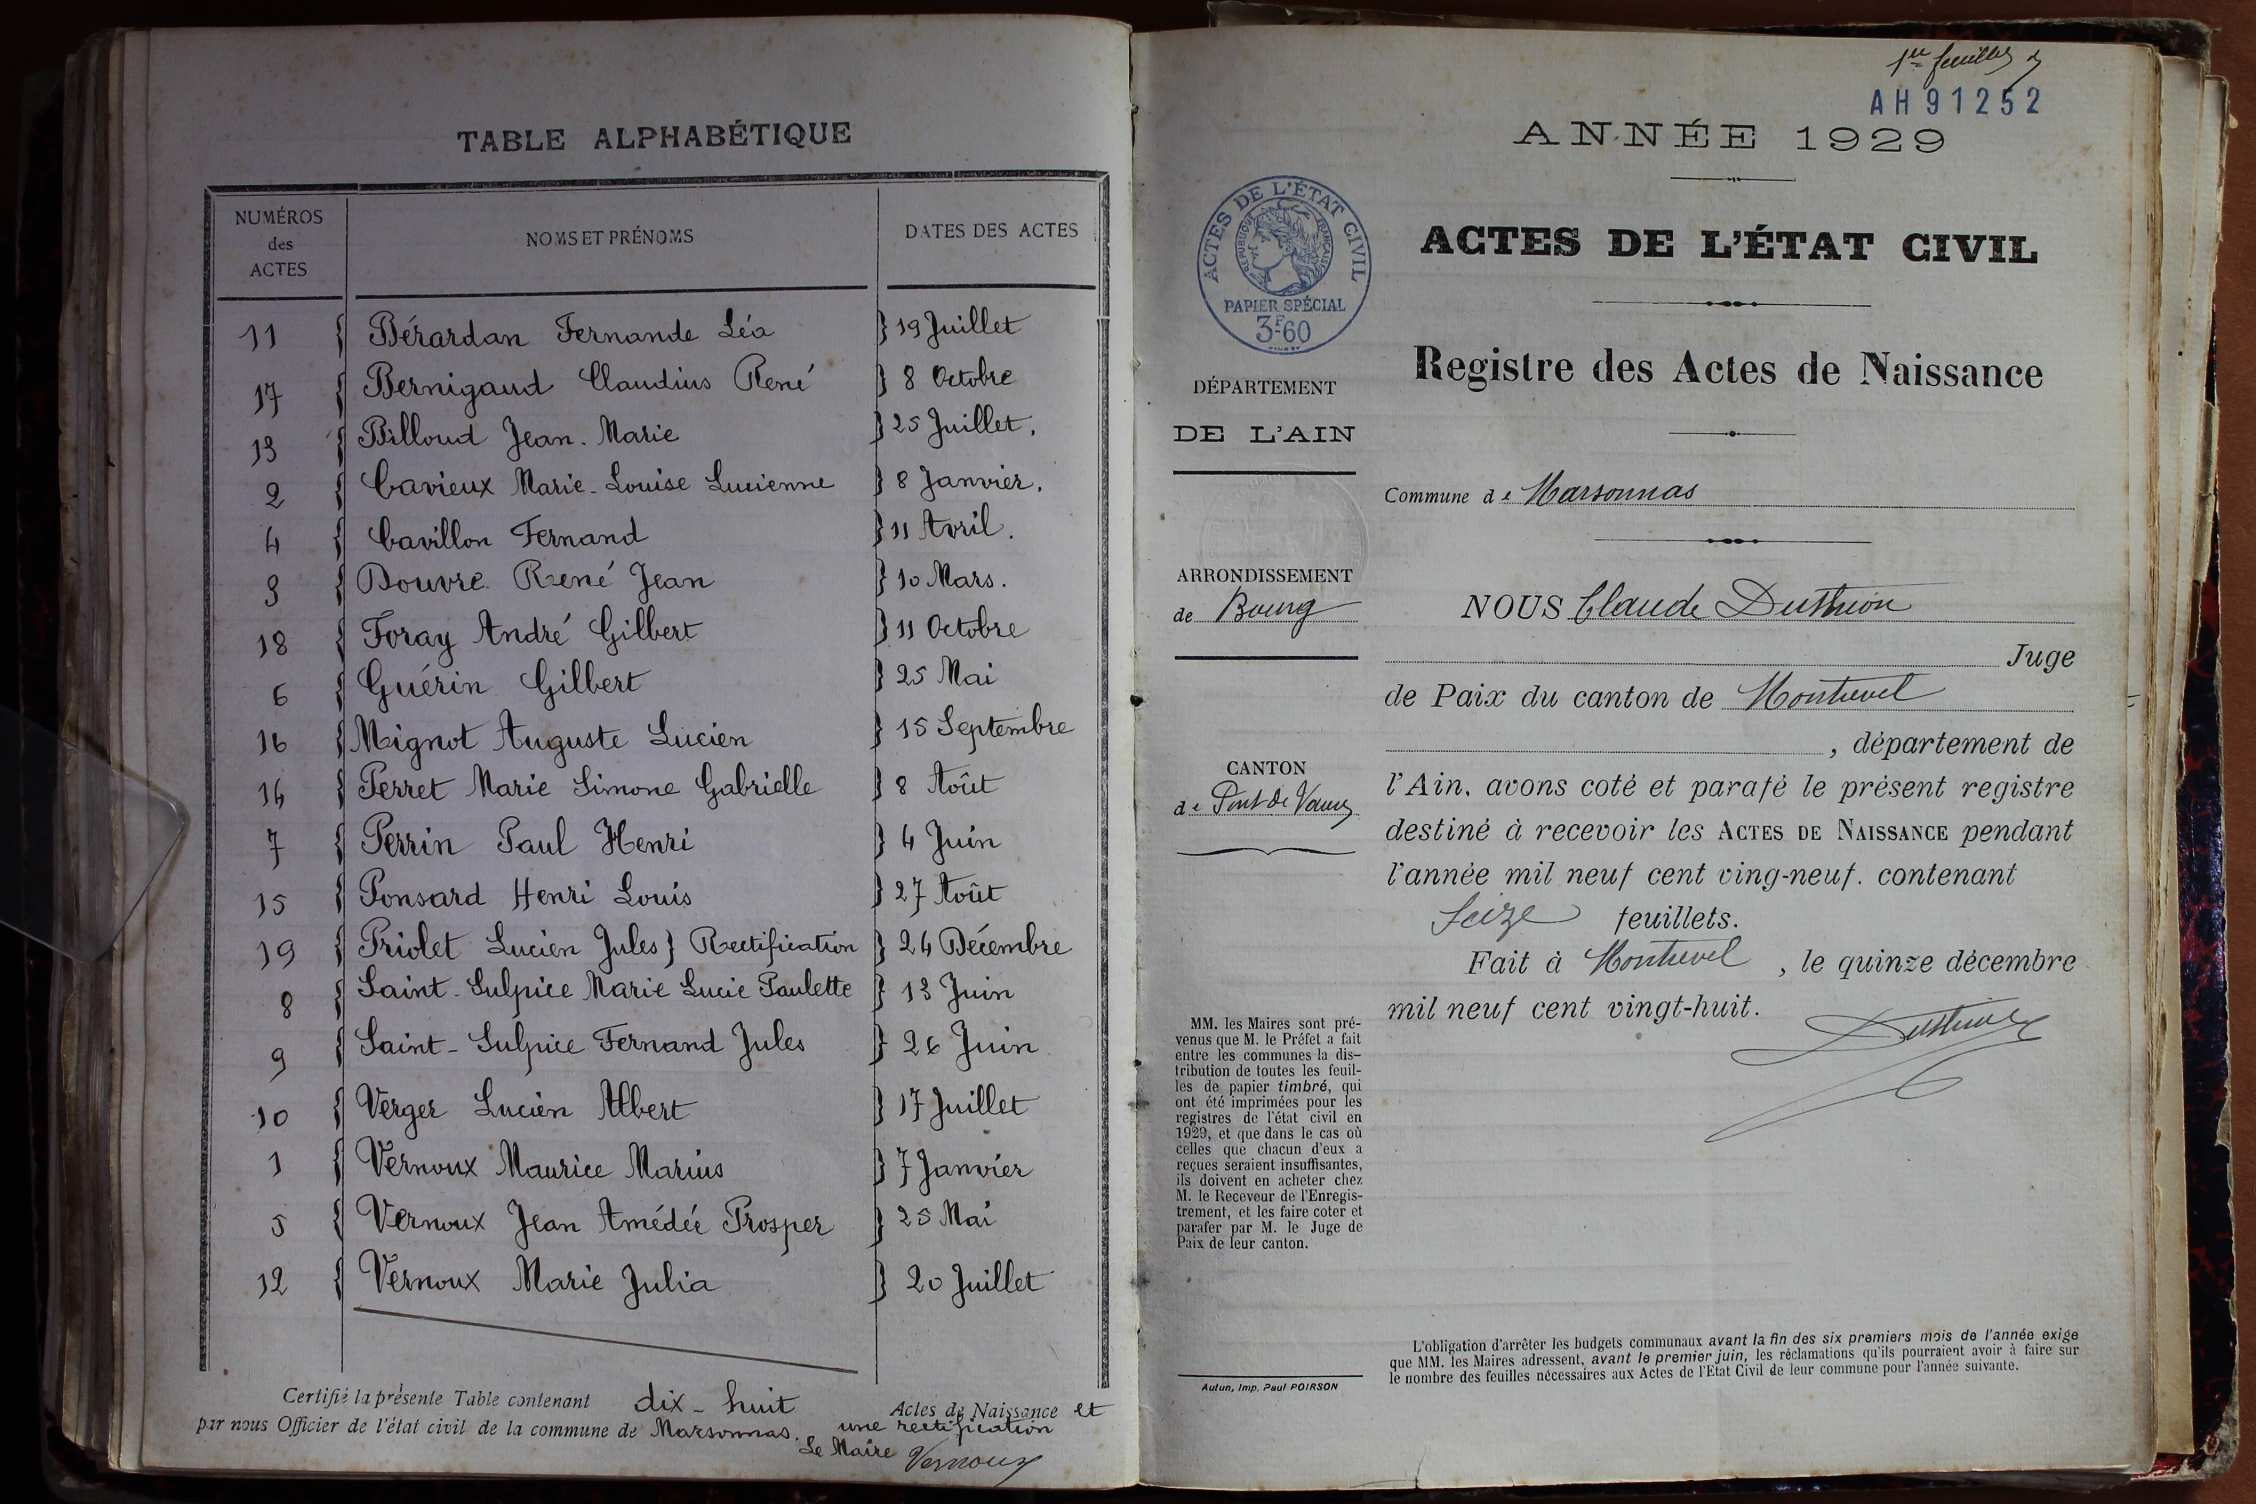 TABLE ALPHABÉTIQUE
NUMÉROS des ACTES NOMS ET PRÉNOMS DATES DES ACTES
11 { Bérardan Fernande Léa } 19 Juillet
17 { Bernigaud Claudius René } 8 Octobre
13 { Billoud Jean. Marie } 25 Juillet.
2 { Cavieux Marie-Louise Lucienne } 8 Janvier.
4 { Cavillon Fernand } 11 Avril.
3 { Douvre René Jean } 10 Mars.
18 { Foray André Gilbert } 11 Octobre
6 { Guérin Gilbert } 25 Mai
16 { Mignot Auguste Lucien } 15 Septembre
14 { Perret Marie Simone Gabrielle } 8 Août
7 { Perrin Paul Henri } 4 Juin
15 { Ponsard Henri Louis } 27 Août
19 { Priolet Lucien Jules } Rectification } 24 Décembre
8 { Saint-Sulpice Marie Lucie Paulette } 13 Juin
9 { Saint-Sulpice Fernand Jules } 26 Juin
10 { Verger Lucien Albert } 17 Juillet
1 { Vernoux Maurice Marius } 7 Janvier
5 { Vernoux Jean Amédée Prosper } 25 Mai
12 { Vernoux Marie Julia } 20 Juillet
Certifié la présente Table contenant dix-huit Actes de Naissance et
une rectification
par nous Officier de l'état civil de la commune de Marsonnas.
Le Maire Vernoux
1er feuillet
AH91252
ANNÉE 1929
ACTES DE L'ÉTAT CIVIL
RÉPUBLIQUE FRANÇAISE
PAPIER SPÉCIAL
3F60
ACTES DE L'ÉTAT CIVIL
Registre des Actes de Naissance
DÉPARTEMENT
DE L'AIN
Commune de Marsonnas
ARRONDISSEMENT
de Bourg
CANTON
de Pont de Vaux
NOUS Claude Duthion
Juge
de Paix du canton de Montrevel
, département de
l'Ain, avons coté et parafé le présent registre
destiné à recevoir les ACTES DE NAISSANCE pendant
l'année mil neuf cent ving-neuf. contenant
Seize feuillets.
Fait à Montrevel, le quinze décembre
mil neuf cent vingt-huit.
Duthion
MM. les Maires sont pré-
venus que M. le Préfet a fait
entre les communes la dis-
tribution de toutes les feuil-
les de papier timbré, qui
ont été imprimées pour les
registres de l'état civil en
1929, et que dans le cas où
celles que chacun d'eux a
reçues seraient insuffisantes,
ils doivent en acheter chez
M. le Receveur de l'Enregis-
trement, et les faire coter et
parafer par M. le Juge de
Paix de leur canton.
Autun, Imp. Paul POIRSON
L'obligation d'arrêter les budgets communaux avant la fin des six premiers mois de l'année exige
que MM. les Maires adressent, avant le premier juin, les réclamations qu'ils pourraient avoir à faire sur
le nombre des feuilles nécessaires aux Actes de l'Etat Civil de leur commune pour l'année suivante.